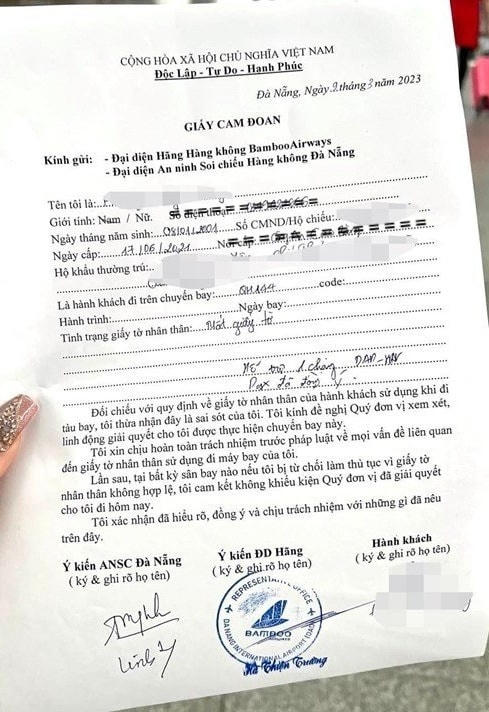 CỘNG HÒA XÃ HỘI CHỦ NGHĨA VIỆT NAM
Độc Lập - Tự Do - Hạnh Phúc
Đà Nẵng, Ngày 9 tháng 3 năm 2023
GIẤY CAM ĐOAN
Kính gửi: - Đại diện Hãng Hàng không BambooAirways
- Đại diện An ninh Soi chiếu Hàng không Đà Nẵng
Tên tôi là:
Giới tính: Nam / Nữ. Số điện thoại:
Ngày tháng năm sinh: 08/01/2001 Số CMND/Hộ chiếu:
Ngày cấp: 17/06/2021 Nơi cấp:
Hộ khẩu thường trú:
Là hành khách đi trên chuyến bay: QH144 code:
Hành trình: Ngày bay:
Tình trạng giấy tờ nhân thân: Mất giấy tờ
Hỗ trợ 1 chặng DAD-HAN
Pax đã
Đối chiếu với quy định về giấy tờ nhân thân của hành khách sử dụng khi đi
tàu bay, tôi thừa nhận đây là sai sót của tôi. Tôi kính đề nghị Quý đơn vị xem xét,
linh động giải quyết cho tôi được thực hiện chuyến bay này.
Tôi xin chịu hoàn toàn trách nhiệm trước pháp luật về mọi vấn đề liên quan
đến giấy tờ nhân thân sử dụng đi máy bay của tôi.
Lần sau, tại bất kỳ sân bay nào nếu tôi bị từ chối làm thủ tục vì giấy tờ
nhân thân không hợp lệ, tôi cam kết không khiếu kiện Quý đơn vị đã giải quyết
cho tôi đi hôm nay.
Tôi xác nhận đã hiểu rõ, đồng ý và chịu trách nhiệm với những gì đã nêu
trên đây.
Ý kiến ANSC Đà Nẵng Ý kiến ĐD Hãng Hành khách
( ký & ghi rõ họ tên) ( ký & ghi rõ họ tên) (ký & ghi rõ họ tên)
REPRESENTATIVE OFFICE
BAMBOO
AIRWAYS
DA NANG INTERNATIONAL AIRPORT (DAD)
Hà Thiện Trường
Linh